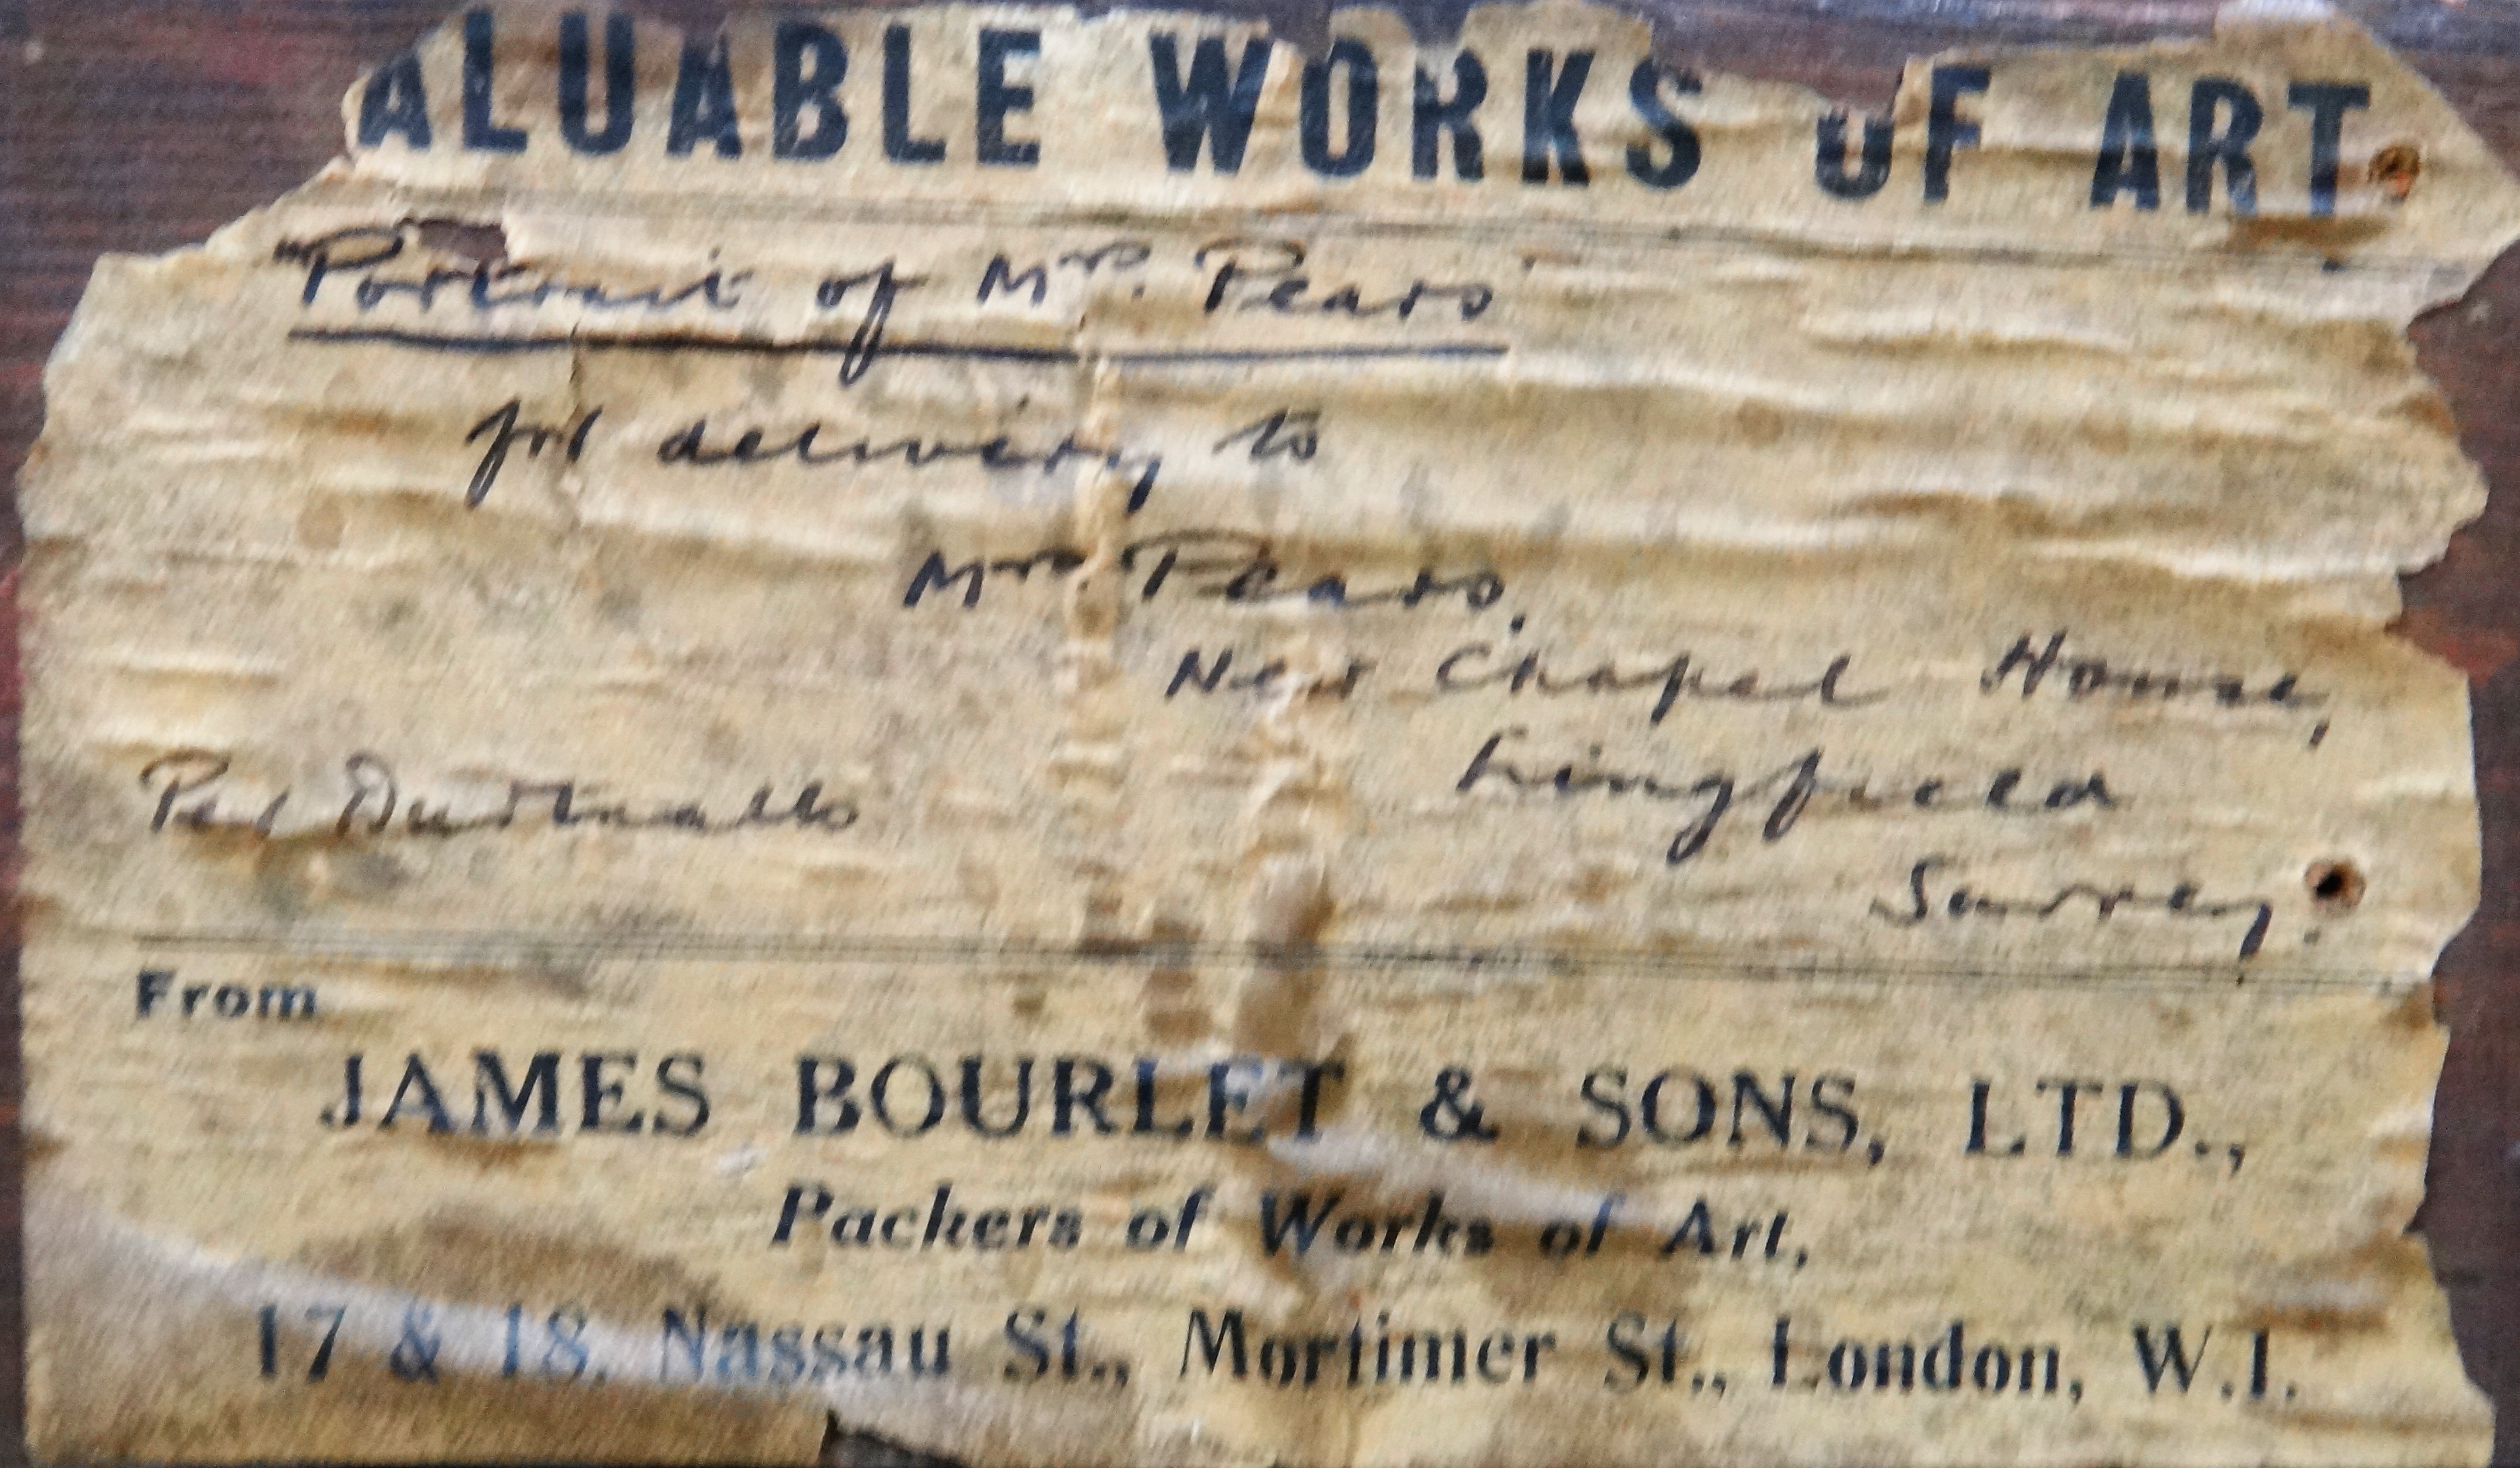 ALUABLE WORKS OF ART
"Portrait of Mrs. Pears"
for delivery to
Mrs Pears,
New Chapel House,
Lingfield
Surrey.
Per Dudmalls
From
JAMES BOURLET & SONS, LTD.,
Packers of Works of Art,
17 & 18, Nassau St., Mortimer St., London, W.1.